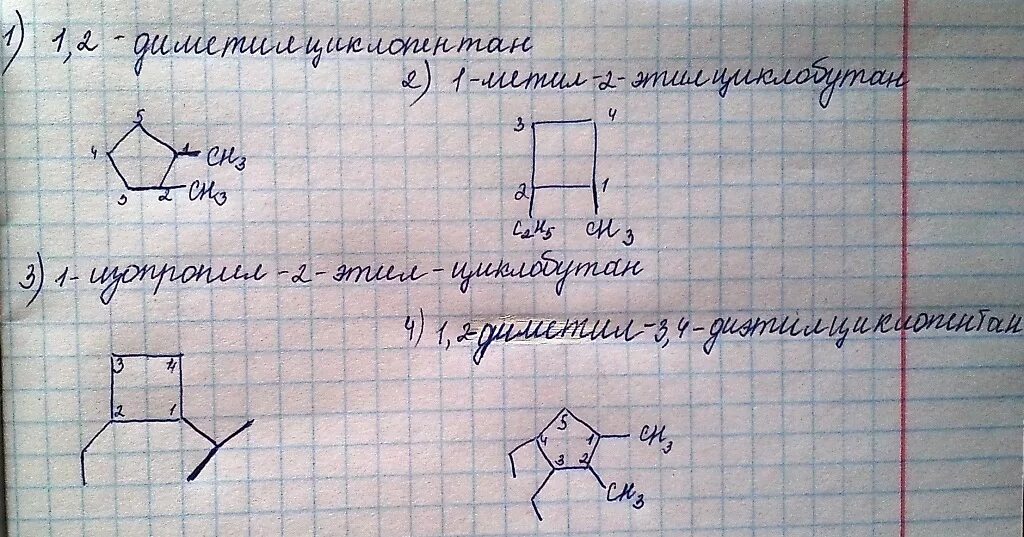 1) 1,2 - диметилциклопентан
2) 1-метил-2-этилциклобутан
5
4 1 CH3
3 2 CH3
3 4
2 1
C2H5 CH3
3) 1-изопропил-2-этил-циклобутан
4) 1,2-диметил-3,4-диэтилциклопентан
3 4
2 1
5
4 1 CH3
3 2
CH3